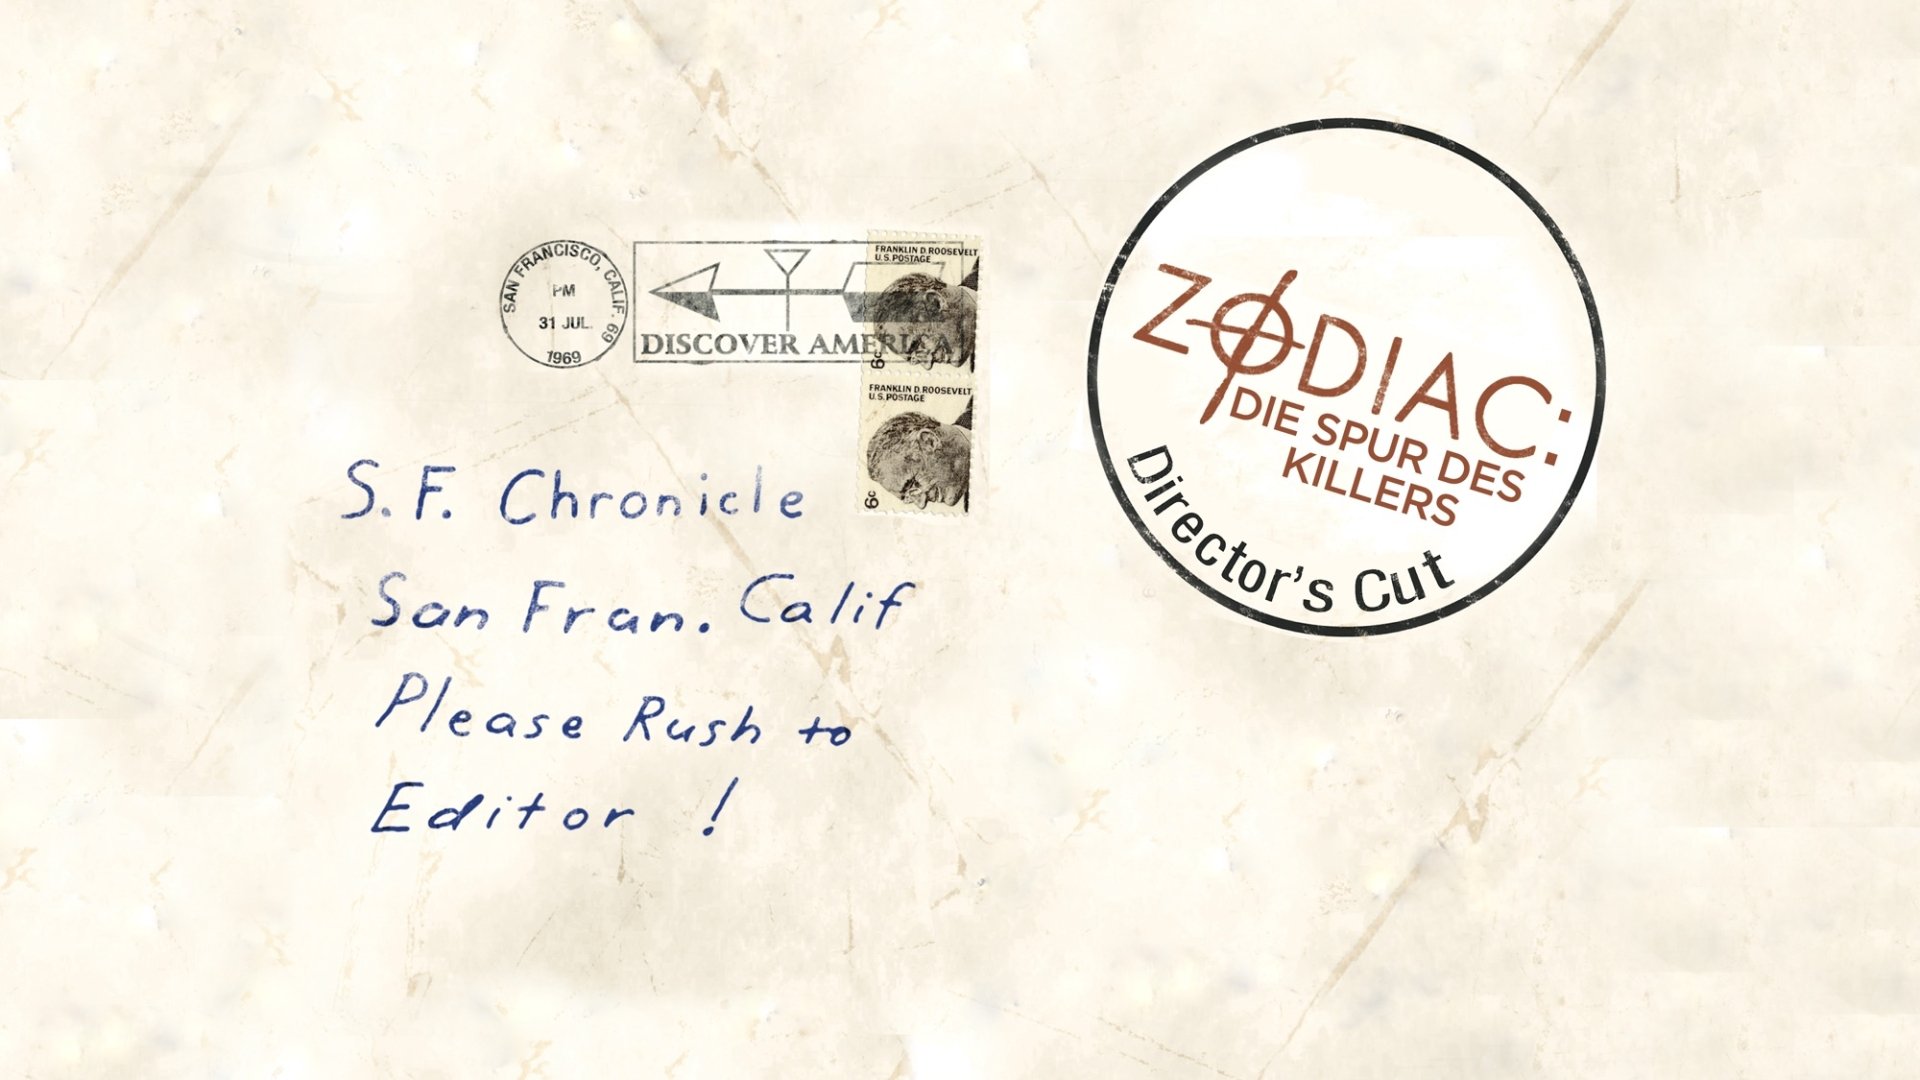 SAN FRANCISCO, CALIF. 69
PM
31 JUL.
1969
DISCOVER AMERICA
FRANKLIN D. ROOSEVELT
U.S. POSTAGE
6c
FRANKLIN D. ROOSEVELT
U.S. POSTAGE
6c
S. F. Chronicle
San Fran. Calif
Please Rush to
Editor !
ZODIAC:
DIE SPUR DES
KILLERS
Director's Cut